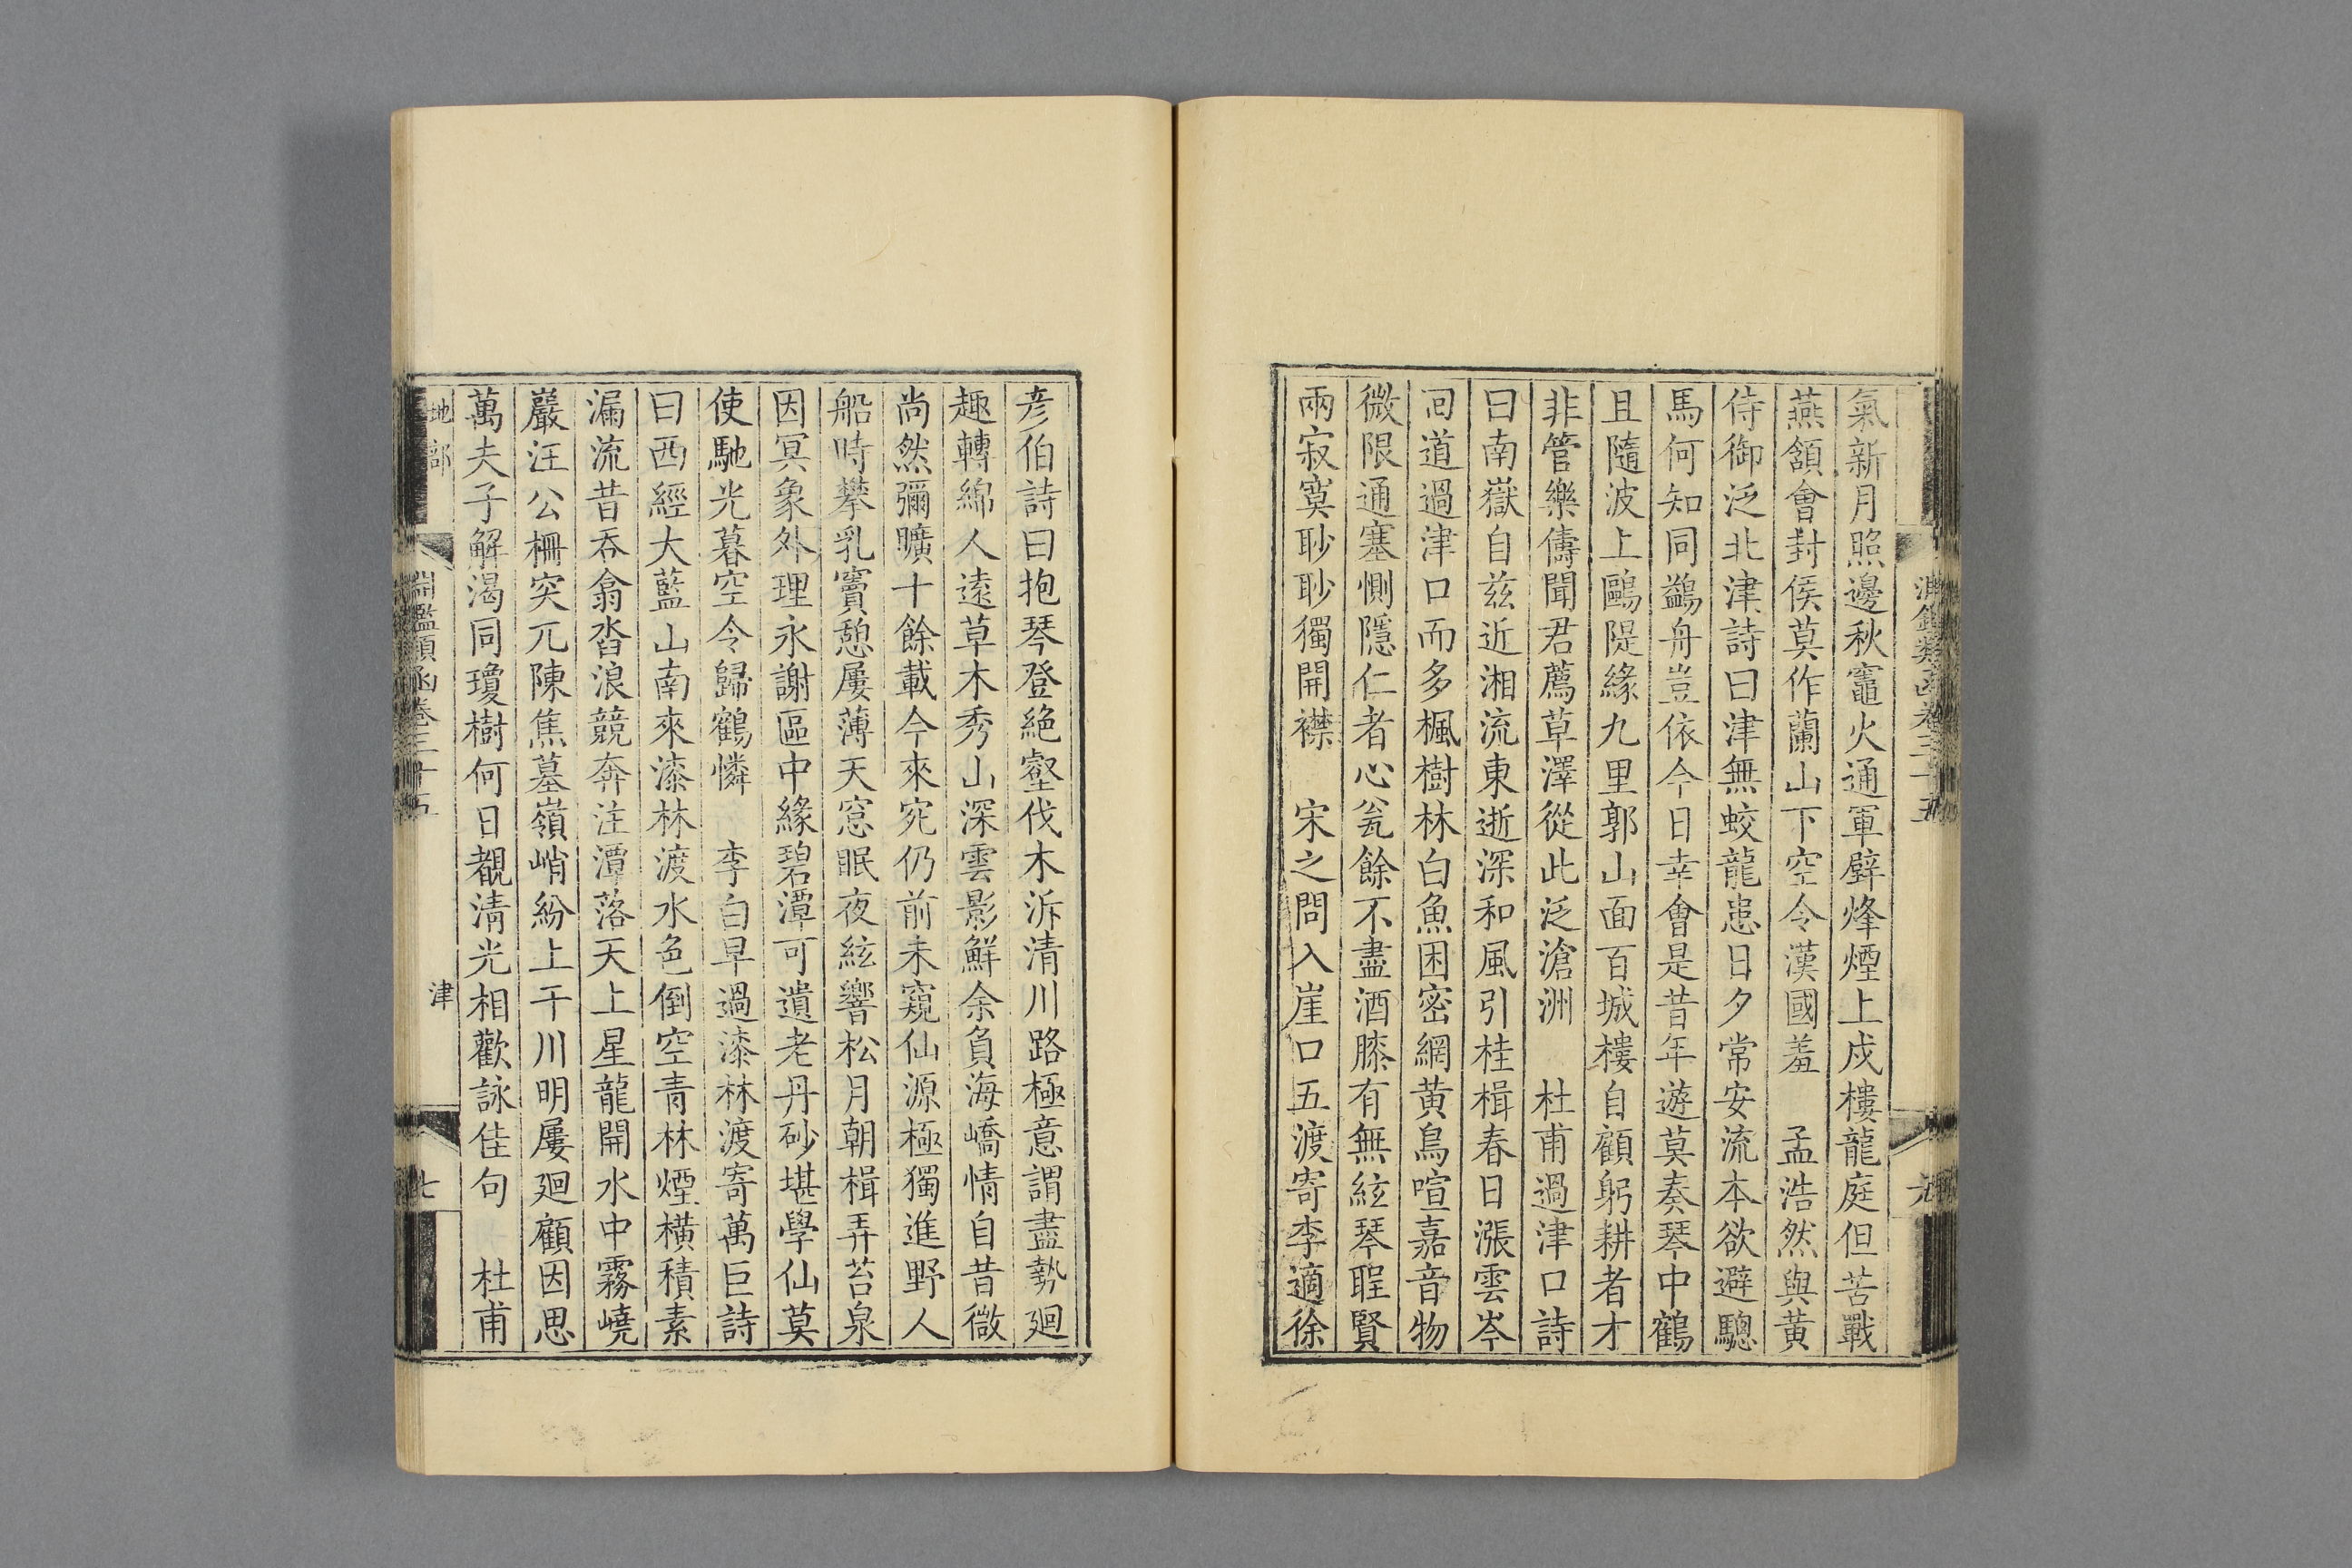 氣新月照邊秋竈火通軍壁烽煙上戍樓龍庭但苦戰
燕頷會封侯莫作蘭山下空令漢國羞　孟浩然與黃
侍御泛北津詩曰津無蛟龍患日夕常安流本欲避驄
馬何知同鷁舟豈依今日幸會是昔年遊莫奏琴中鶴
且隨波上鷗隄緣九里郭山面百城樓自顧躬耕者才
非管樂儔聞君薦草澤從此泛滄洲　杜甫過津口詩
曰南嶽自兹近湘流東逝深和風引桂楫春日漲雲岑
回道過津口而多楓樹林白魚困密網黃鳥喧嘉音物
微限通塞惻隱仁者心瓮餘不盡酒膝有無絃琴聖賢
兩寂寞眇眇獨開襟　宋之問入崖口五渡寄李適徐
彦伯詩曰抱琴登絶壑伐木泝清川路極意謂盡勢廻
趣轉綿人遠草木秀山深雲影鮮余負海嶠情自昔微
尚然彌曠十餘載今來宛仍前未窺仙源極獨進野人
船時攀乳竇憩屢薄天窓眠夜絃響松月朝楫弄苔泉
因冥象外理永謝區中緣碧潭可遺老丹砂堪學仙莫
使馳光暮空令歸鶴憐　李白早過漆林渡寄萬巨詩
曰西經大藍山南來漆林渡水色倒空青林煙橫積素
漏流昔吞翕沓浪競奔注潭落天上星龍開水中霧嶢
巖汪公柵突兀陳焦墓嶺峭紛上干川明屢廻顧因思
萬夫子解渴同瓊樹何日覩清光相歡詠佳句　杜甫
地部
淵鑑類函卷三十五
津
七